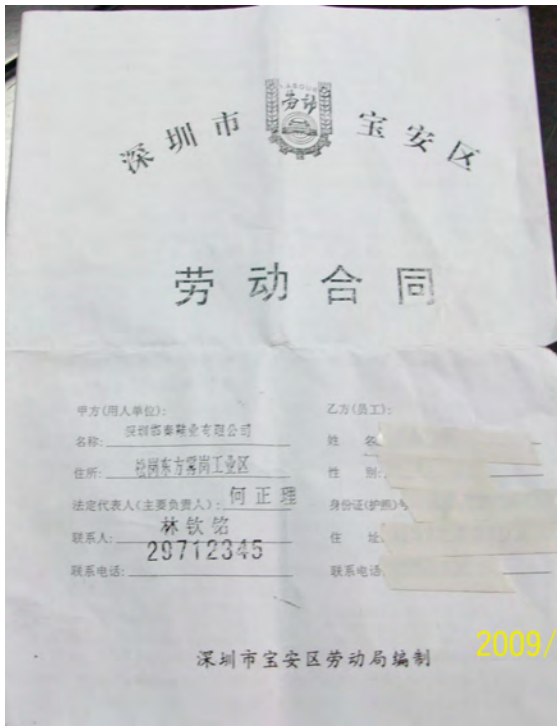 LABOUR
劳动
深圳市 宝安区
劳动合同
甲方(用人单位):
名称: 深圳 鞋业有限公司
住所: 松岗东方 岗工业区
法定代表人(主要负责人): 何正理
联系人: 林钦铭
联系电话: 29712345
乙方(员工):
姓 名
性 别:
身份证(护照)号
住 址
联系电话:
深圳市宝安区劳动局编制
2009/